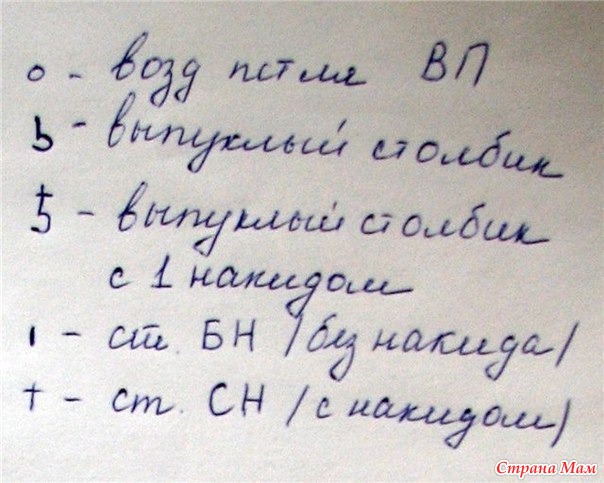 о - возд петля ВП
ь - выпуклый столбик
 - выпуклый столбик
с 1 накидом
ı - ст. БН /без накида/
† - ст. СН /с накидом/
Страна Мам